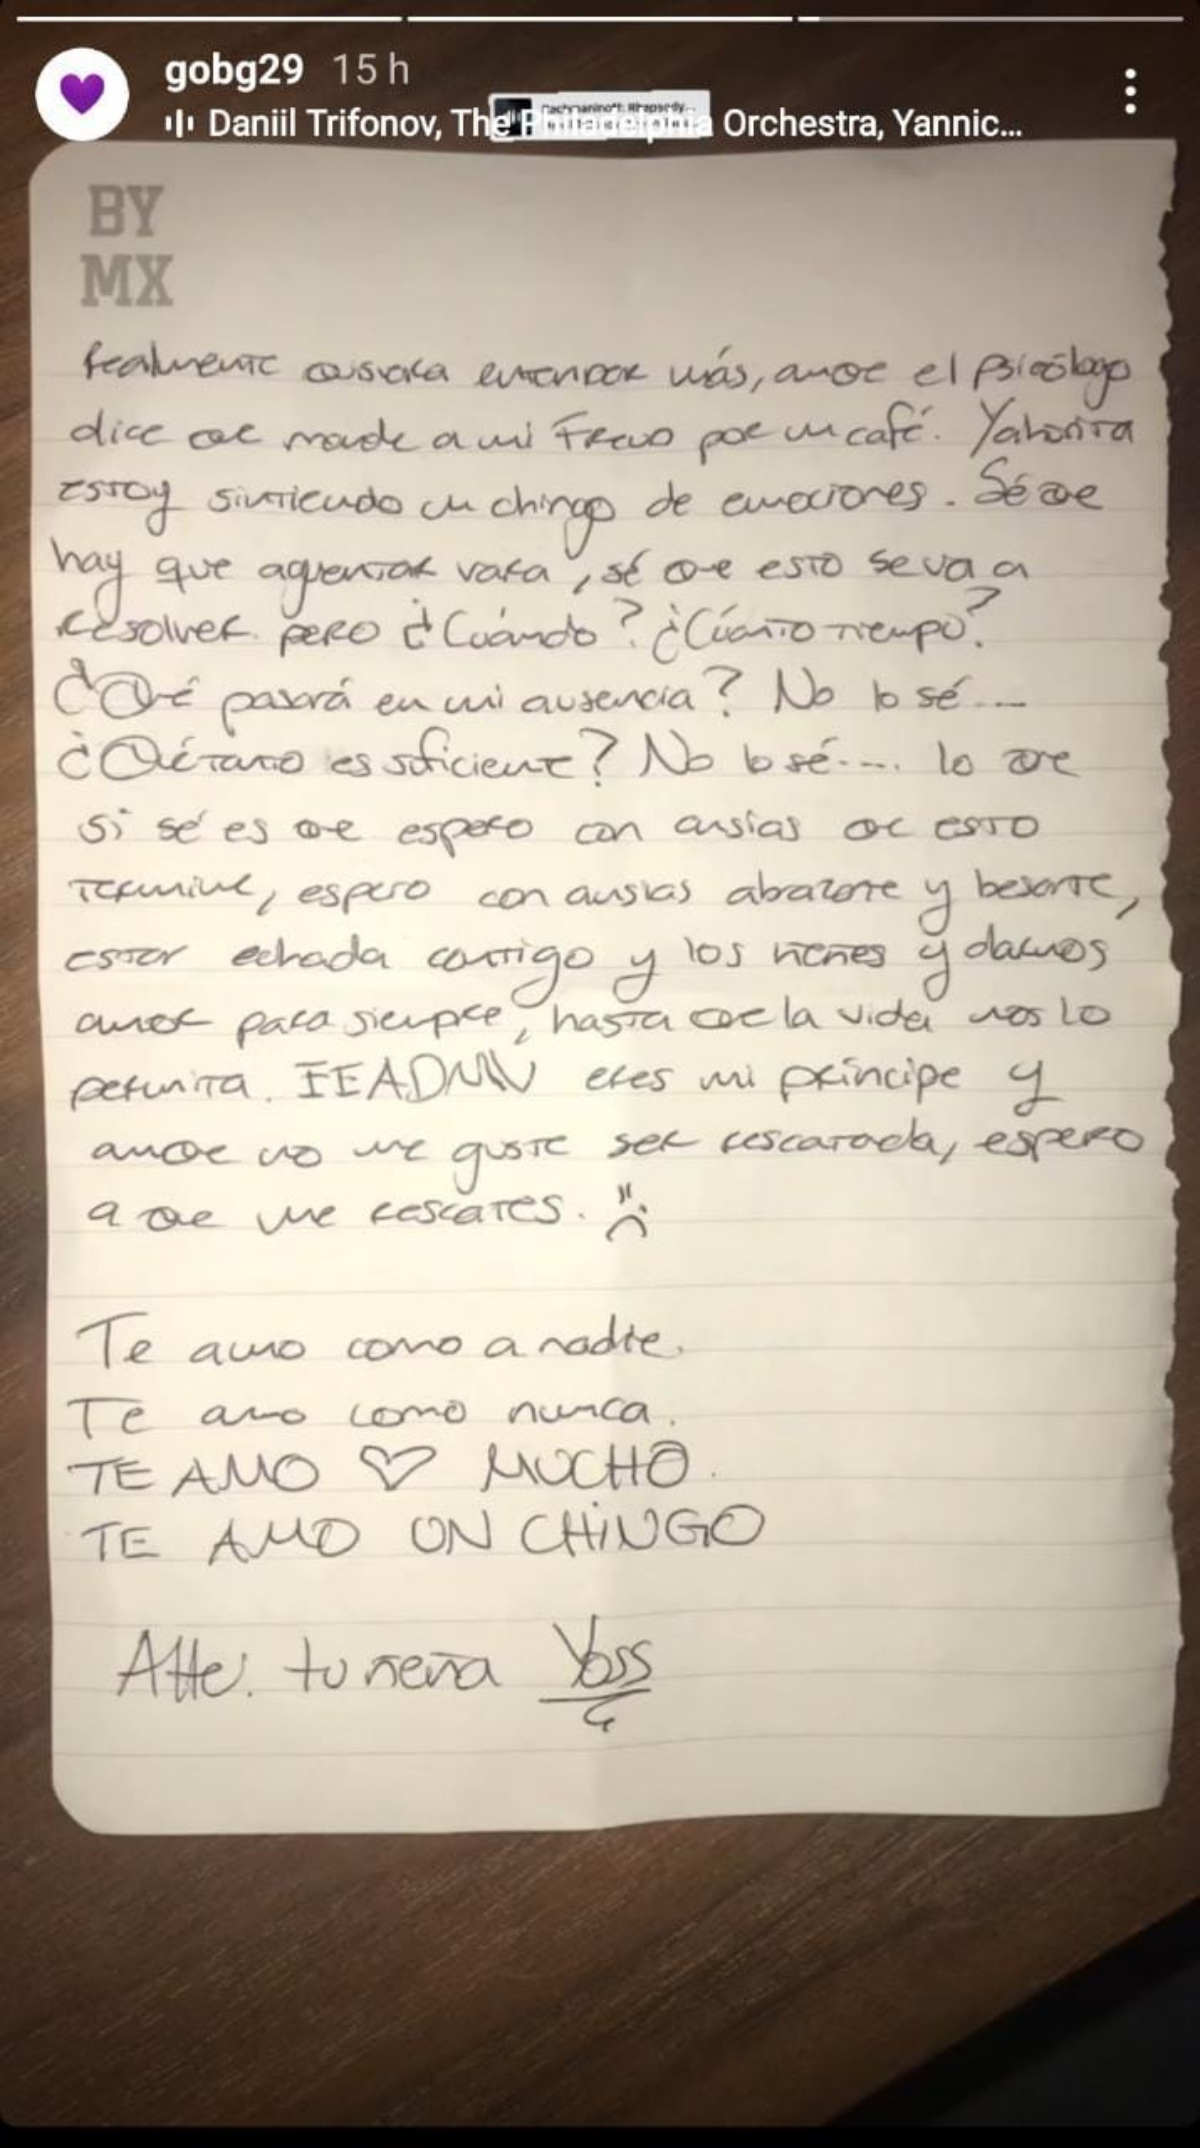 gobg29 15 h
Daniil Trifonov, The Philadelphia Orchestra, Yannic...
BY
MX
Realmente quisiera entender más, aunqe el psicólogo
dice qe mande a mi Freud por un café. Yahorita
estoy sintiendo un chingo de emociones. Sé qe
hay que aguentar vara, sé qe esto se va a
resolver pero ¿Cuándo? ¿Cuánto tiempo?
¿Qué pasará en mi ausencia? No lo sé...
¿Qué tanto es suficiente? No lo sé.... lo qe
si sé es qe espero con ansias qe esto
termine, espero con ansias abrazarte y besarte,
estar echada contigo y los nenes y darnos
amor para siempre, hasta qe la vida nos lo
permita. FEADMV eres mi príncipe y
aunqe no me guste ser rescatada, espero
a qe me rescates. :(
Te amo como a nadie.
Te amo como nunca.
TE AMO ♡ MUCHO.
TE AMO UN CHiNGO
Atte. tu nena Yoss